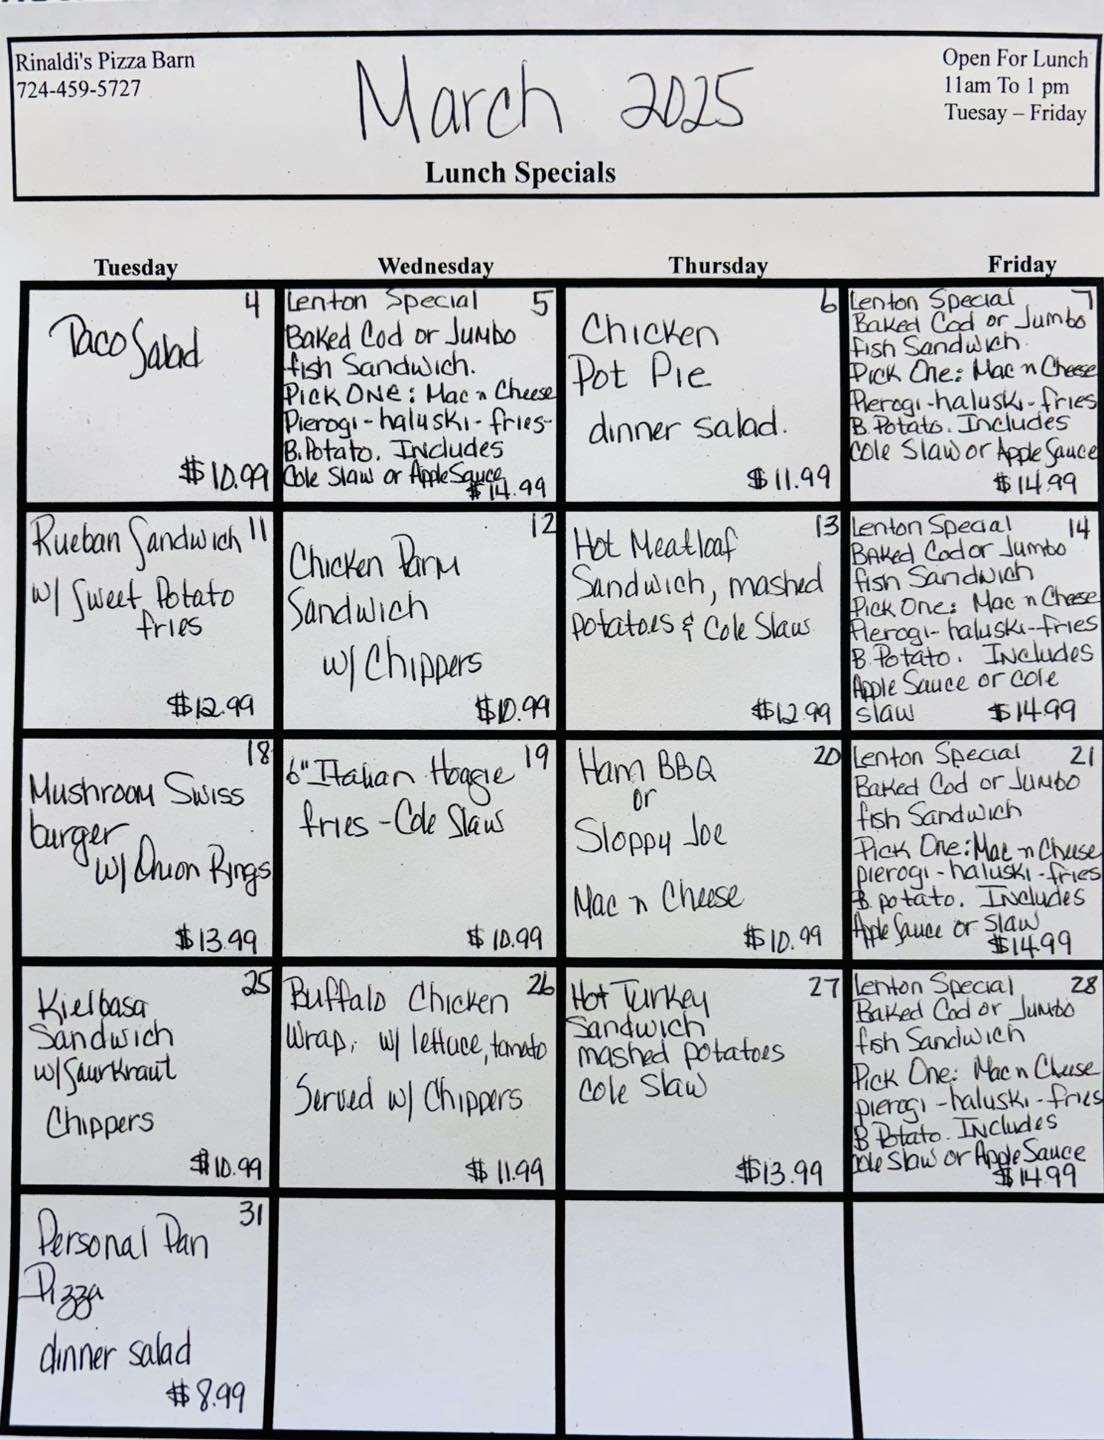 Rinaldi's Pizza Barn
724-459-5727
March 2025
Lunch Specials
Open For Lunch
11am To 1 pm
Tuesay – Friday
Tuesday
Wednesday
Thursday
Friday
4
Taco Salad
$10.99
Lenton Special 5
Baked Cod or Jumbo
fish Sandwich.
Pick One: Mac n Cheese
Pierogi - haluski - fries-
B.Potato. Includes
Cole Slaw or Apple Sauce
$14.99
6
Chicken
Pot Pie
dinner salad.
$11.99
Lenton Special 7
Baked Cod or Jumbo
fish Sandwich.
Pick One: Mac n Cheese
Pierogi - haluski - fries
B. Potato. Includes
Cole Slaw or Apple Sauce
$14.99
Rueban Sandwich 11
w/ Sweet Potato
fries
$12.99
12
Chicken Parm
Sandwich
w/ Chippers
$10.99
Hot Meatloaf 13
Sandwich, mashed
potatoes & Cole Slaw
$12.99
Lenton Special 14
Baked Cod or Jumbo
fish Sandwich
Pick One: Mac n Cheese
Pierogi - haluski - fries
B. Potato. Includes
Apple Sauce or cole
slaw $14.99
18
Mushroom Swiss
burger
w/ Onion Rings
$13.99
6" Italian Hoagie 19
fries - Cole Slaw
$10.99
Ham BBQ 20
or
Sloppy Joe
Mac n Cheese
$10.99
Lenton Special 21
Baked Cod or Jumbo
fish Sandwich
Pick One: Mac n Cheese
pierogi - haluski - fries
B. potato. Includes
Apple Sauce or Slaw
$14.99
25
Kielbasa
Sandwich
w/ Saurkraut
Chippers
$10.99
Buffalo Chicken 26
Wrap, w/ lettuce, tomato
Served w/ Chippers
$11.99
Hot Turkey 27
Sandwich
mashed potatoes
cole Slaw
$13.99
Lenton Special 28
Baked Cod or Jumbo
fish Sandwich
Pick One: Mac n Cheese
pierogi - haluski - fries
B Potato. Includes
Cole Slaw or Apple Sauce
$14.99
31
Personal Pan
Pizza
dinner salad
$8.99